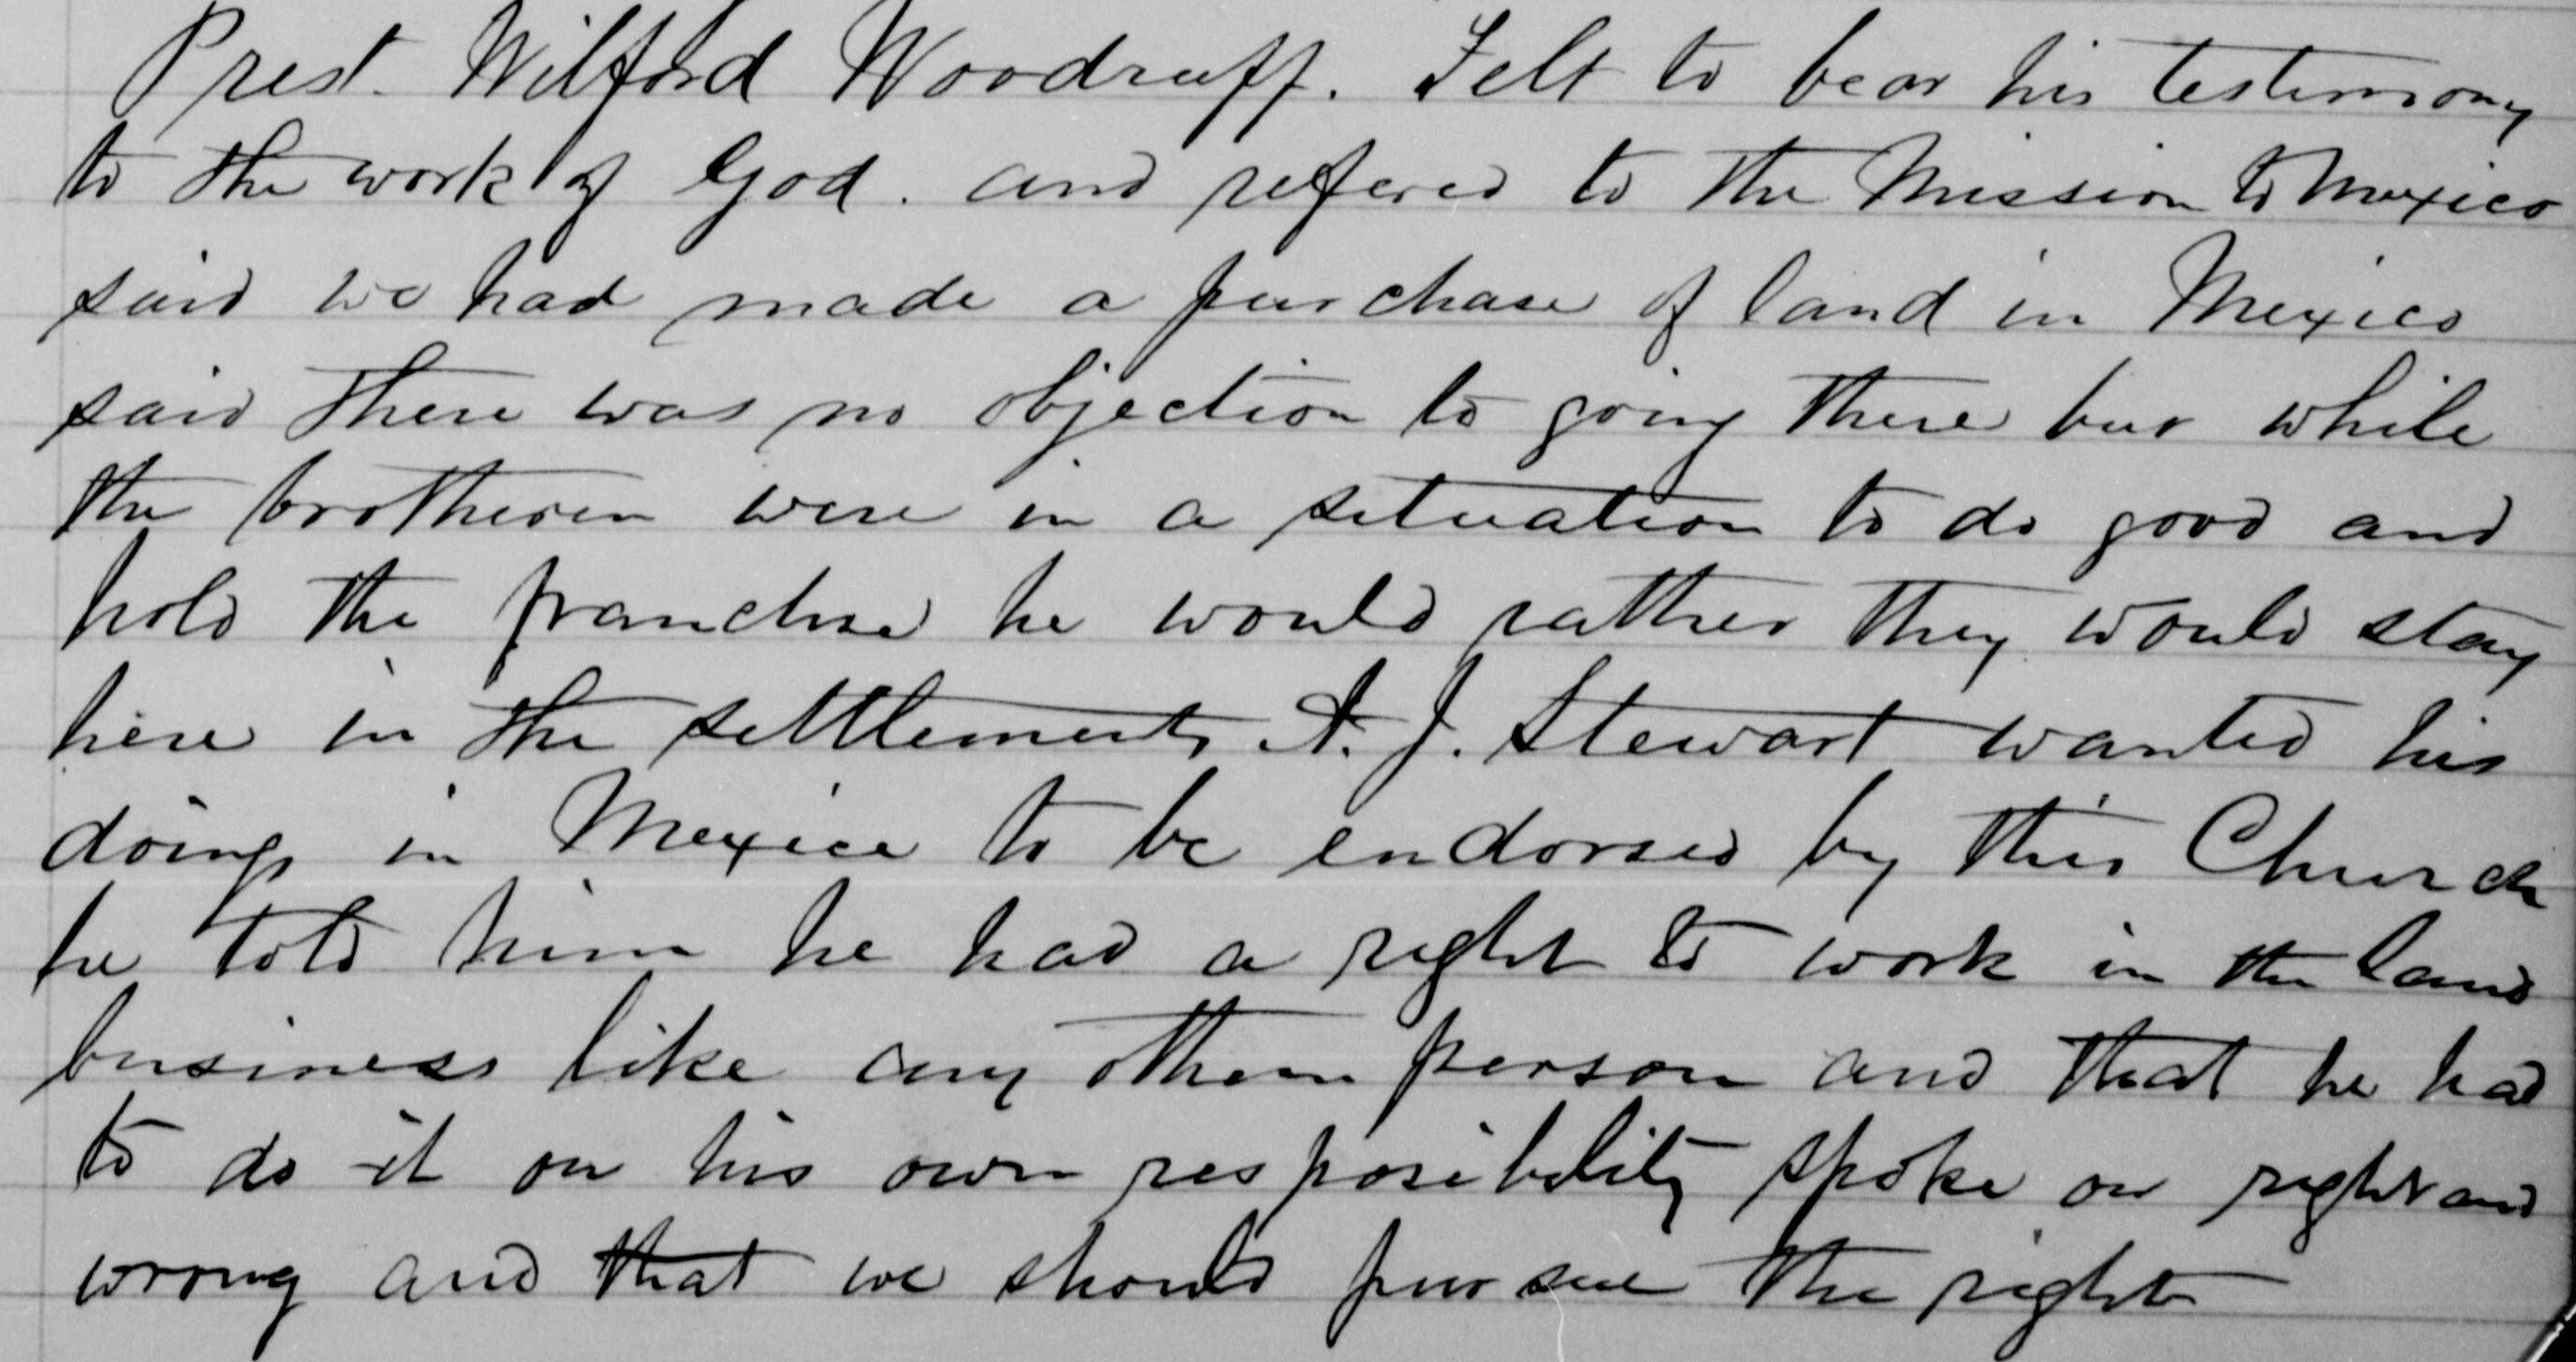 Prest. Wilford Woodruff. Felt to bear his testimony
to the work of God. and refered to the Mission to Mexico
said we had made a purchase of land in Mexico
said there was no objection to going there but while
the brotheren were in a situation to do good and
hold the franchise he would rather they would stay
here in the settlements A. J. Stewart wanted his
doings in Mexico to be endorsed by this Church
he told him he had a right to work in the land
business like any other person and that he had
to do it on his own resposibility spoke on right and
wrong and that we should pursue the right